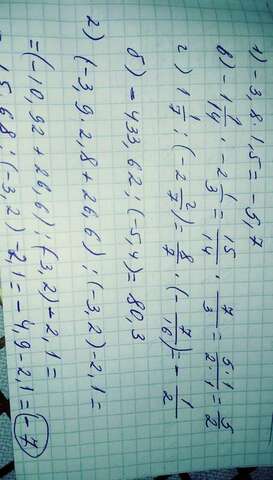 1) -3,8·1,5=-5,7
в) -1 1/14·-2 1/3=15/14·7/3=5·1/2·1=5/2
г) 1 1/7:(-2 2/7)=8/7·(-7/16)=-1/2
б) -433,62:(-5,4)=80,3
2) (-3,9·2,8+26,6):(-3,2)-2,1=
=(-10,92+26,6):(-3,2)-2,1=
15,68:(-3,2)-2,1=-4,9-2,1=-7